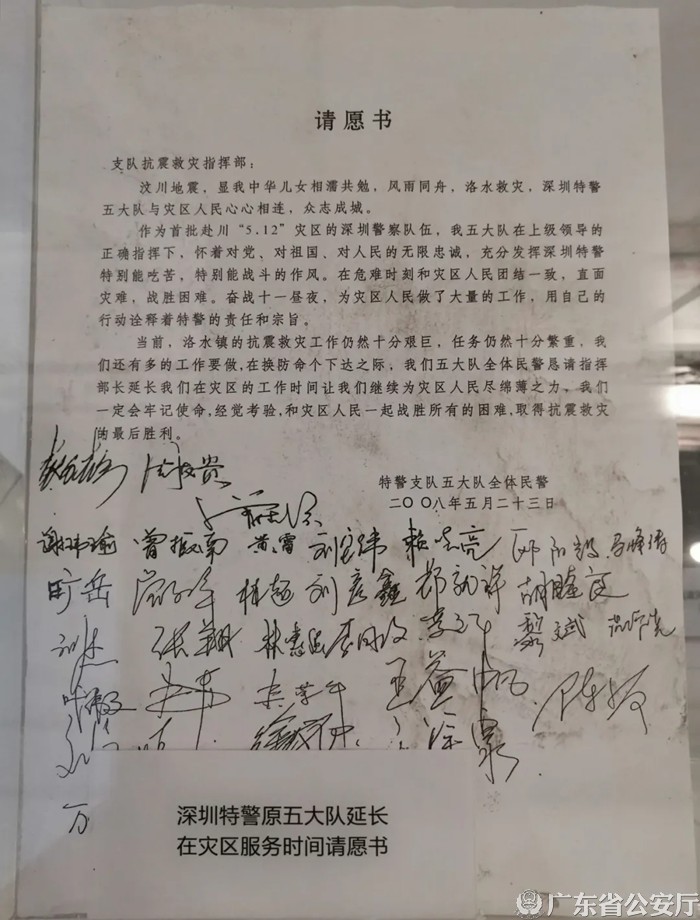 请愿书
支队抗震救灾指挥部：
汶川地震，显我中华儿女相濡共勉，风雨同舟，洛水救灾，深圳特警
五大队与灾区人民心心相连，众志成城。
作为首批赴川“5.12”灾区的深圳警察队伍，我五大队在上级领导的
正确指挥下，怀着对党、对祖国、对人民的无限忠诚，充分发挥深圳特警
特别能吃苦，特别能战斗的作风。在危难时刻和灾区人民团结一致，直面
灾难，战胜困难。奋战十一昼夜，为灾区人民做了大量的工作，用自己的
行动诠释着特警的责任和宗旨。
当前，洛水镇的抗震救灾工作仍然十分艰巨，任务仍然十分繁重，我
们还有多的工作要做，在换防命个下达之际，我们五大队全体民警恳请指挥
部长延长我们在灾区的工作时间让我们继续为灾区人民尽绵薄之力，我们
一定会牢记使命，经觉考验，和灾区人民一起战胜所有的困难，取得抗震救灾
的最后胜利。
特警支队五大队全体民警
二〇〇八年五月二十三日
曾振南 黄霄
岳 林超 刘彦鑫 郑勋祥
张翔 黎斌
王益帆
万
深圳特警原五大队延长
在灾区服务时间请愿书
广东省公安厅